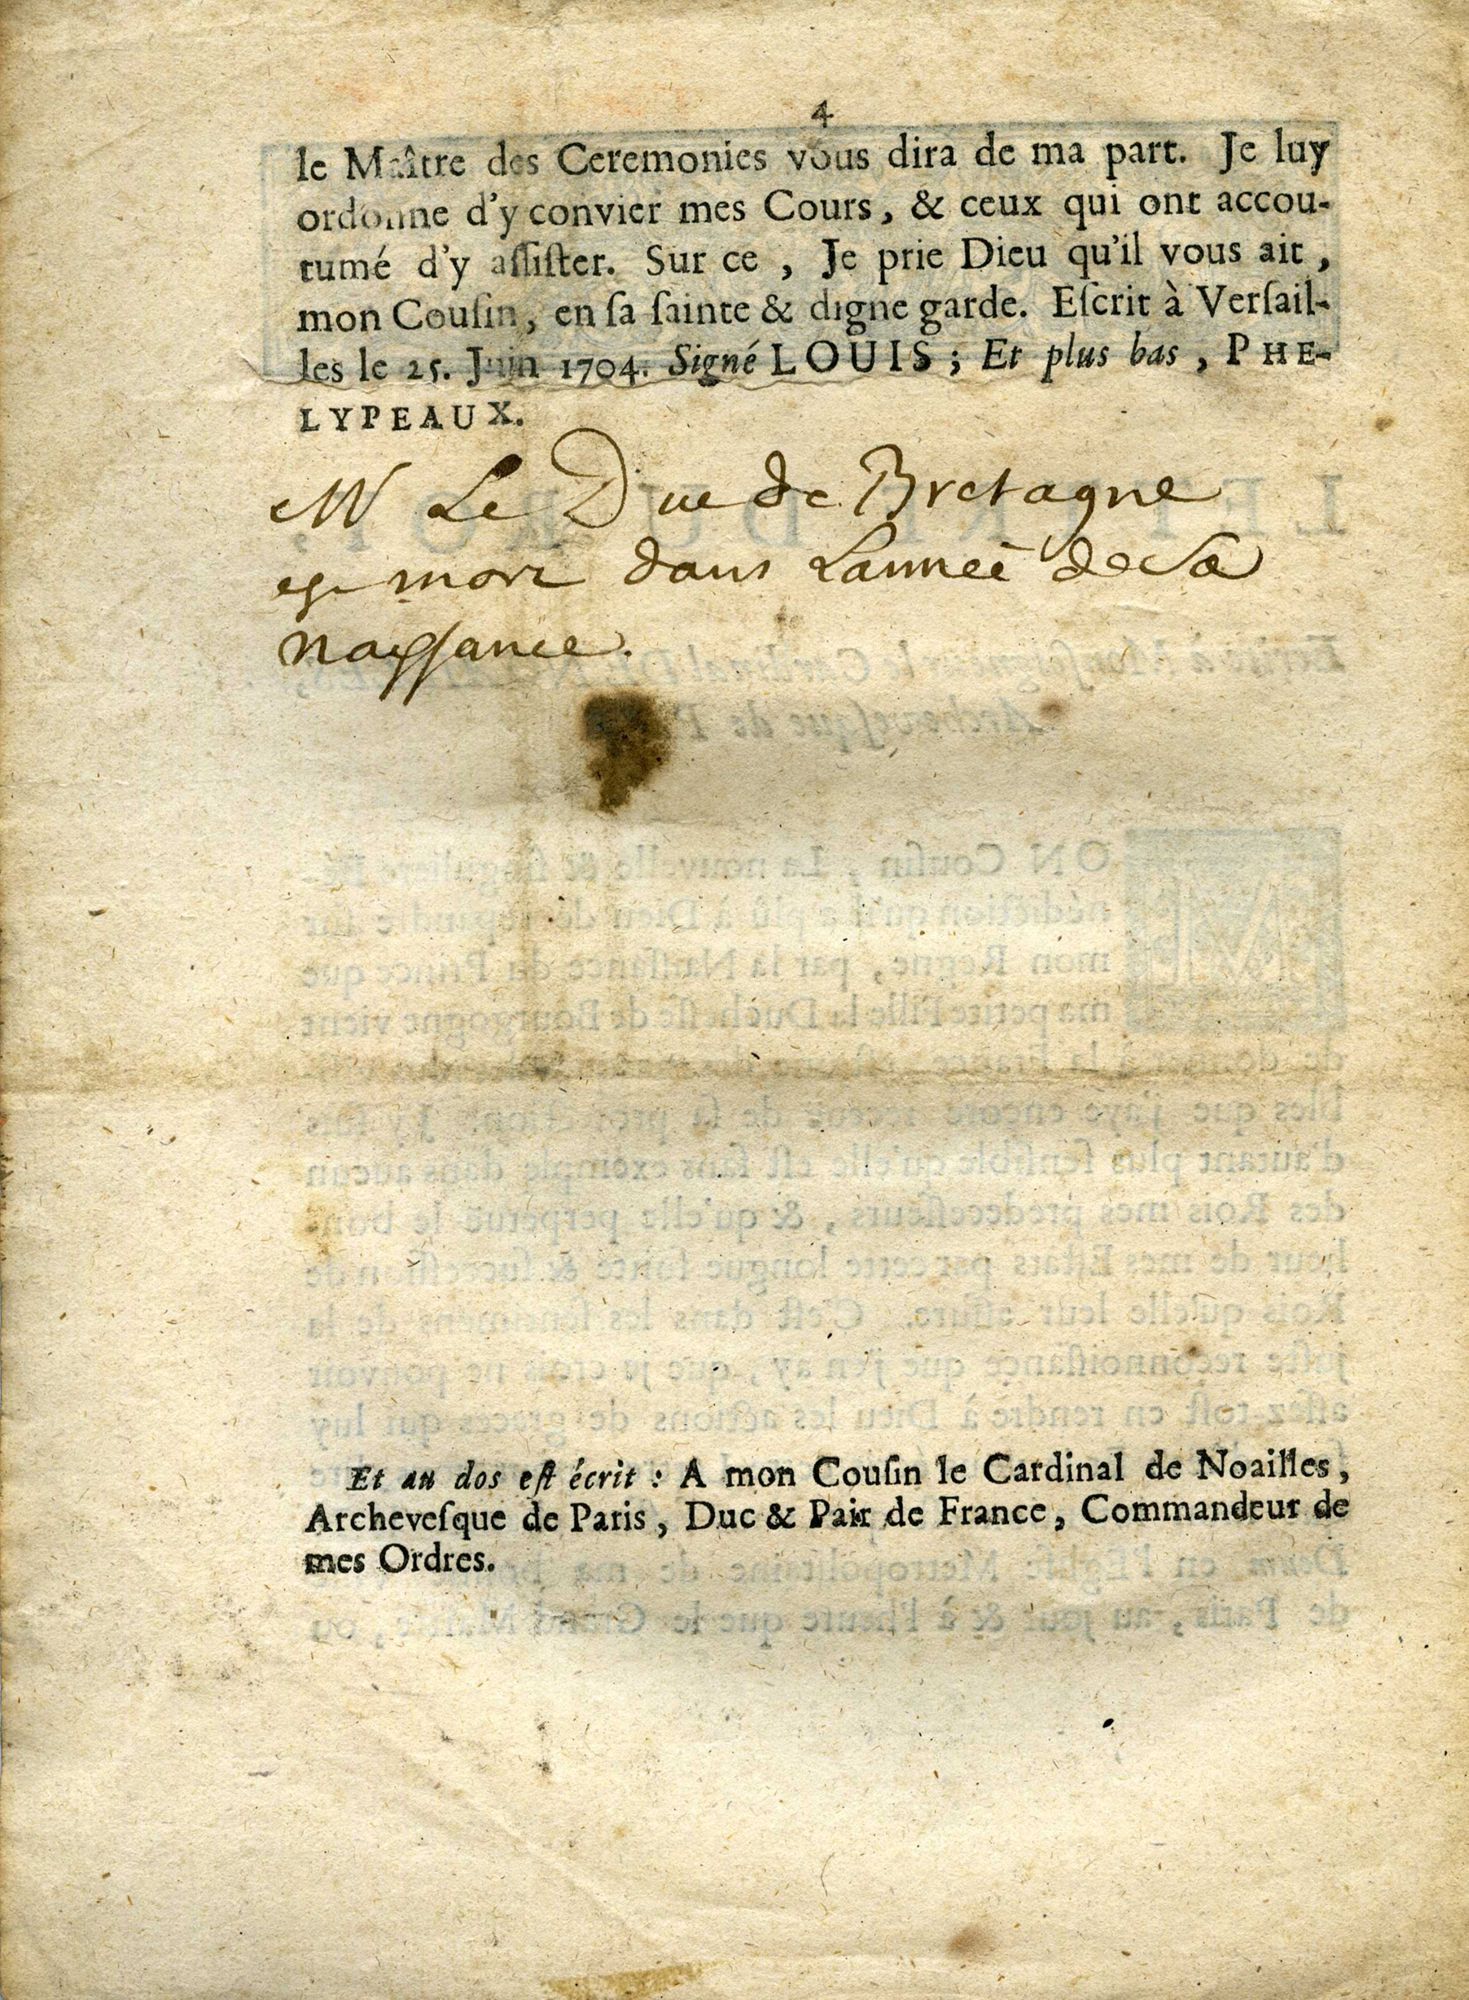 4
le Maître des Ceremonies vous dira de ma part. Je luy
ordonne d'y convier mes Cours, & ceux qui ont accou-
tumé d'y aſſiſter. Sur ce , Je prie Dieu qu'il vous ait ,
mon Couſin, en ſa ſainte & digne garde. Eſcrit à Verſail-
les le 25. Juin 1704. Signé LOUIS ; Et plus bas , PHE-
LYPEAUX.
Mr Le Duc de Bretagne
est mort dans Lanneé de Sa
naissance.
Et au dos eſt écrit : A mon Couſin le Cardinal de Noailles,
Archeveſque de Paris, Duc & Pair de France, Commandeur de
mes Ordres.